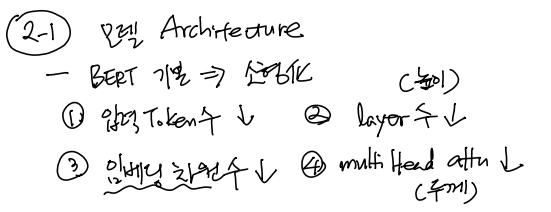 2-1 모델 Architecture
- BERT 기반 ⇒ 소형화
(높이)
① 입력 Token 수 ↓ ② layer 수 ↓
③ 임베딩 차원 수 ↓ ④ multi Head attn ↓
(두께)